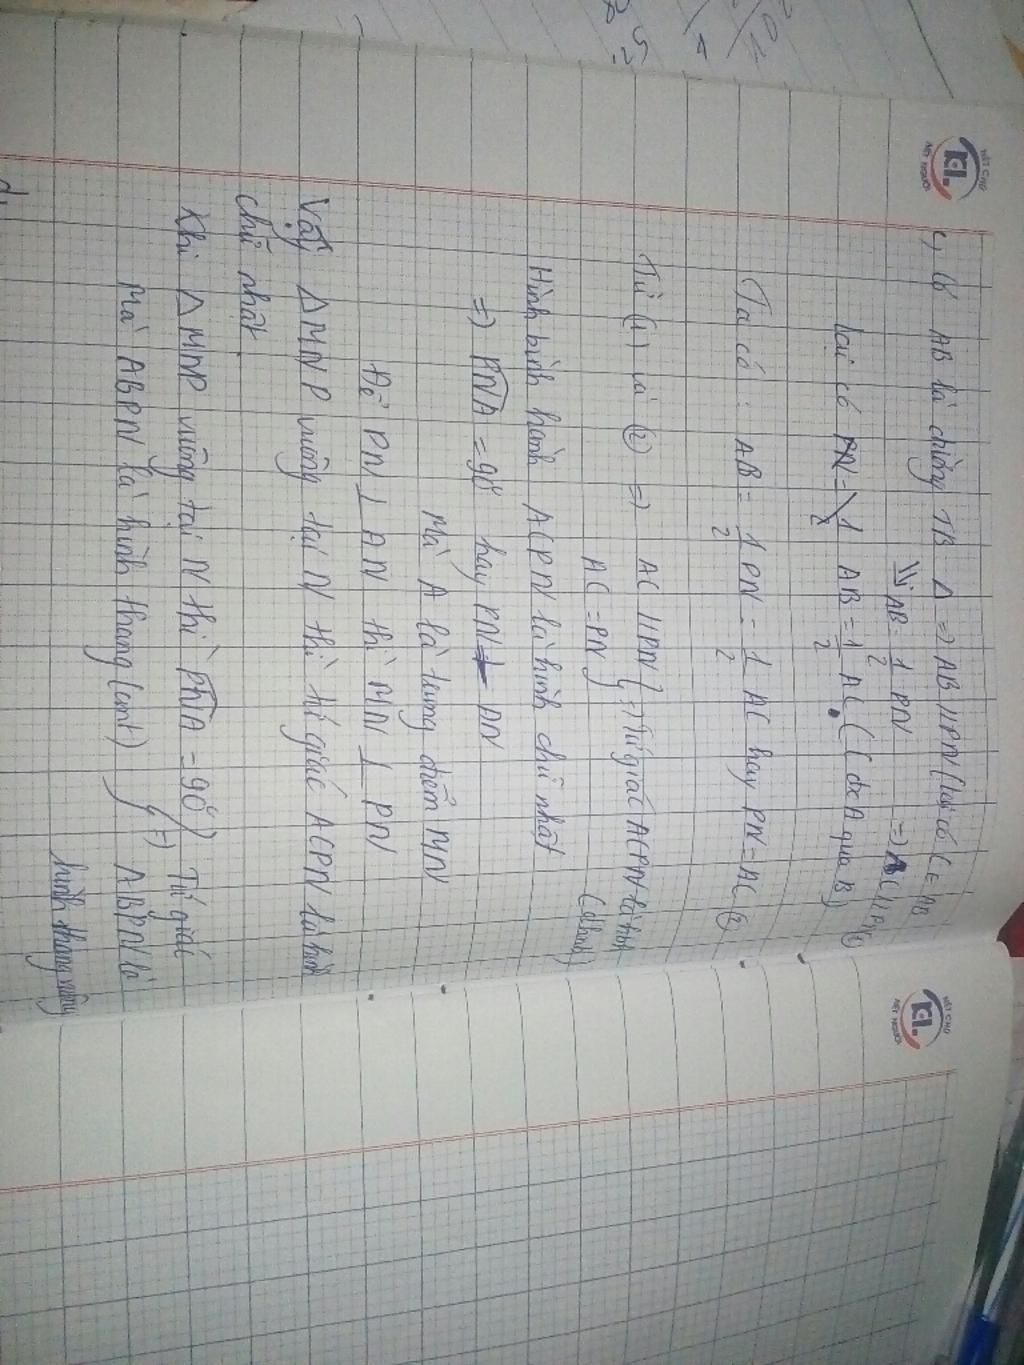 c, Có AB là đường TB Δ => AB // PN (lại có C ∈ AB
=> AB = 1/2 PN => AC // PN ①
lại có AB = 1/2 AC (C đx A qua B)
Ta có : AB = 1/2 PN = 1/2 AC hay PN = AC ②
Từ (1) và ② => AC // PN } => Tứ giác ACPN là hbh
AC = PN (dhnb)
Hình bình hành ACPN là hình chữ nhật
=> PNA = 90° hay PN ⊥ AN
Mà A là trung điểm MN
Để PN ⊥ AN thì MN ⊥ PN
Vậy Δ MNP vuông tại N thì tứ giác ACPN là hình
chữ nhật.
Khi Δ MNP vuông tại N thì PNA = 90° } Tứ giác
Mà ABPN là hình thang (cmt) } => ABPN là
hình thang vuông
d,
NÉT CHỮ
KL.
NẾT NGƯỜI
NÉT CHỮ
KL.
NẾT NGƯỜI